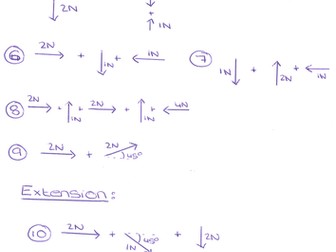 2N
+
1N
6 2N + 1N + 1N
7 1N + 2N + 1N
8 2N + 1N + 2N + 1N + 4N
9 2N + 2N 45°
Extension:
10 2N + 1N 45° + 2N